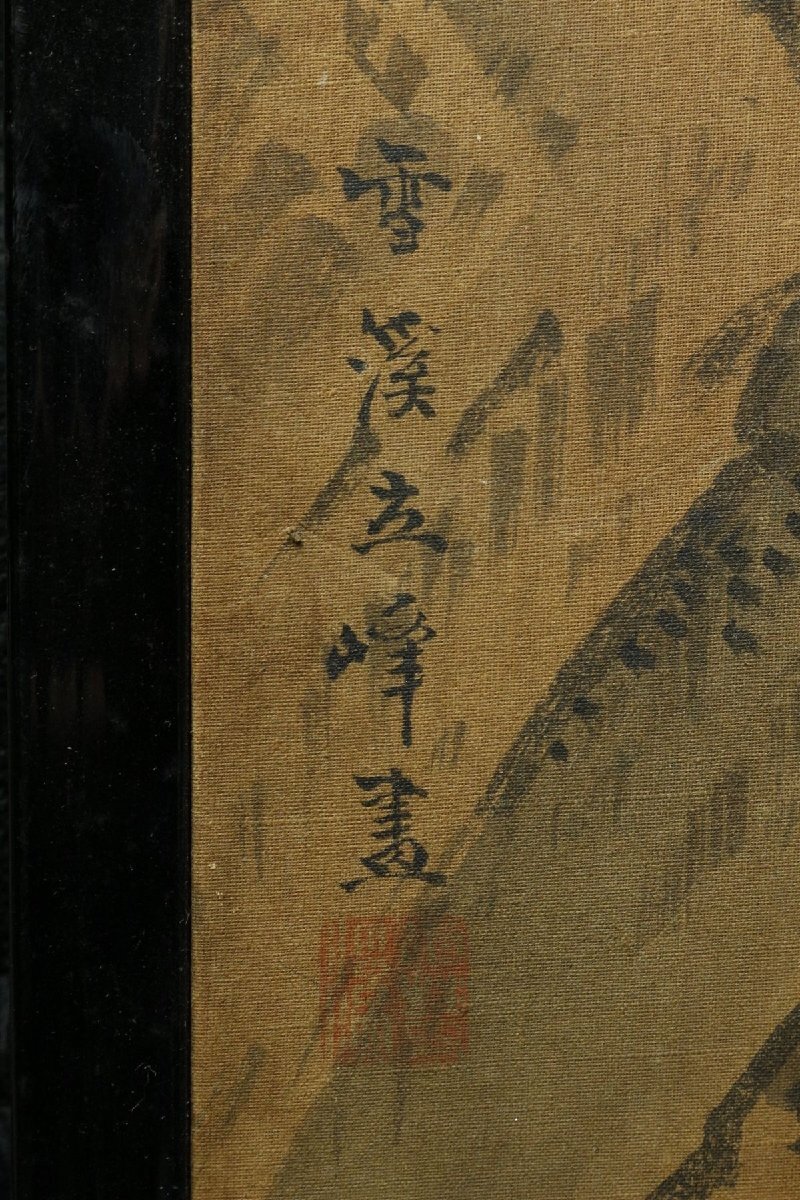 雪溪立峰畫